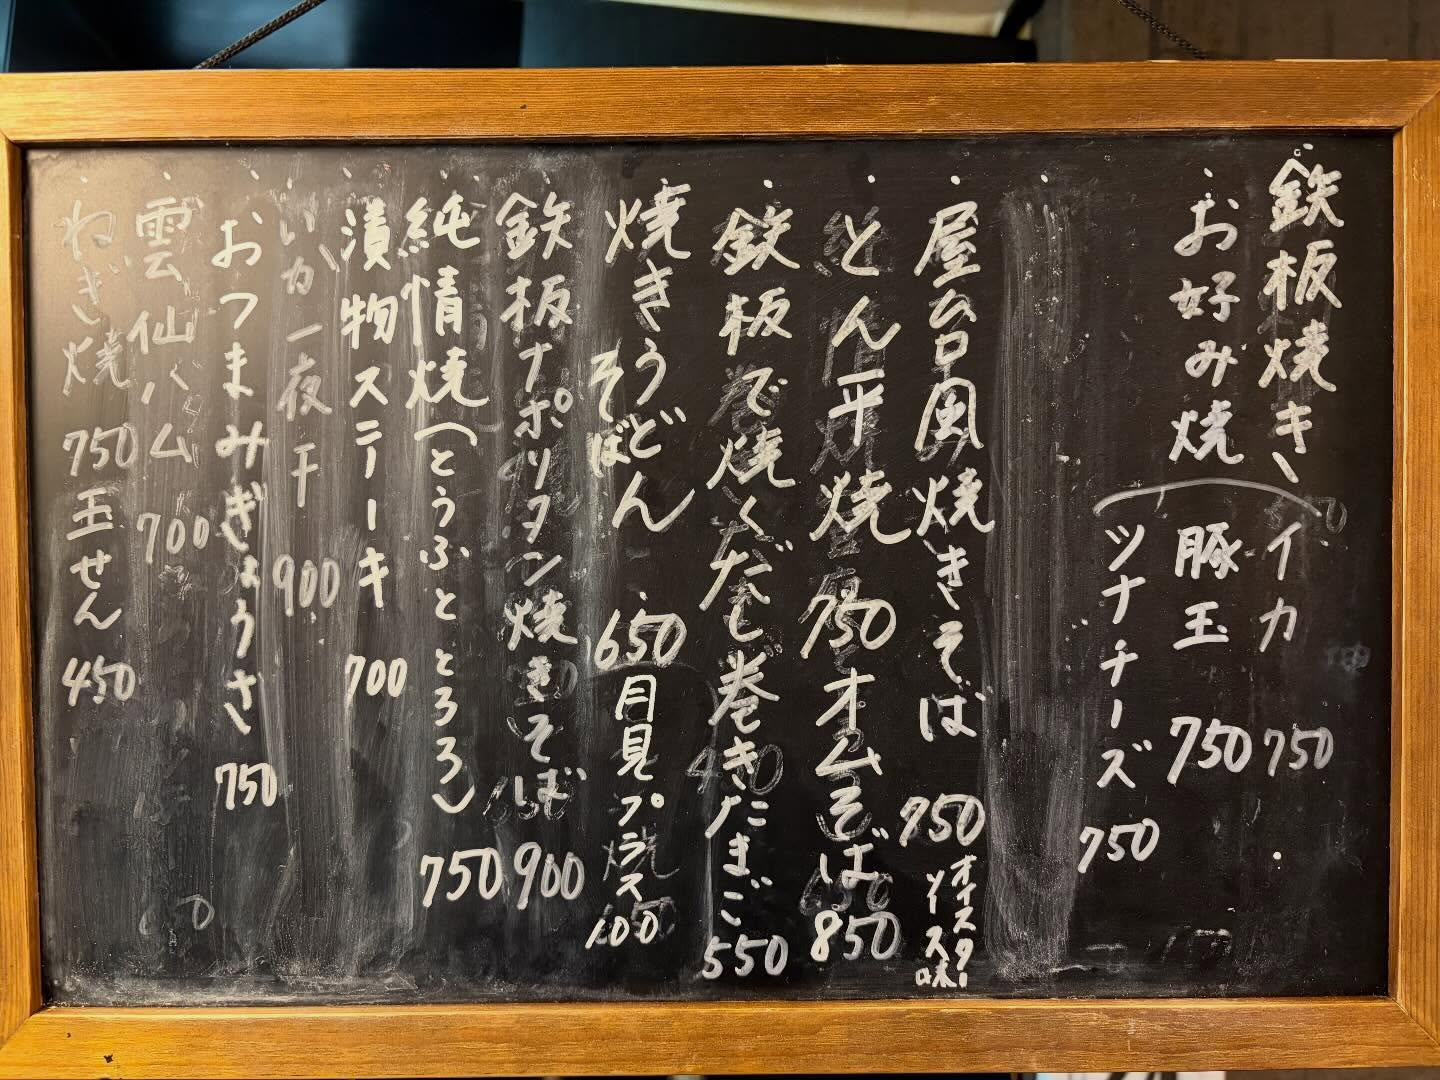 鉄板焼き
イカ 750
お好み焼
豚玉 750
ツナチーズ 750
屋台風焼きそば 750
オイスターソース味
とん平焼 750
オムそば 850
鉄板で焼くだし巻きたまご 550
焼きうどん
そば
650
月見プラス100
鉄板ナポリタン焼きそば 900
純情焼(とうふととろろ) 750
漬物ステーキ 700
いか一夜干 900
おつまみぎょうさ 750
雲仙ハム 700
ねぎ焼 750
玉せん 450